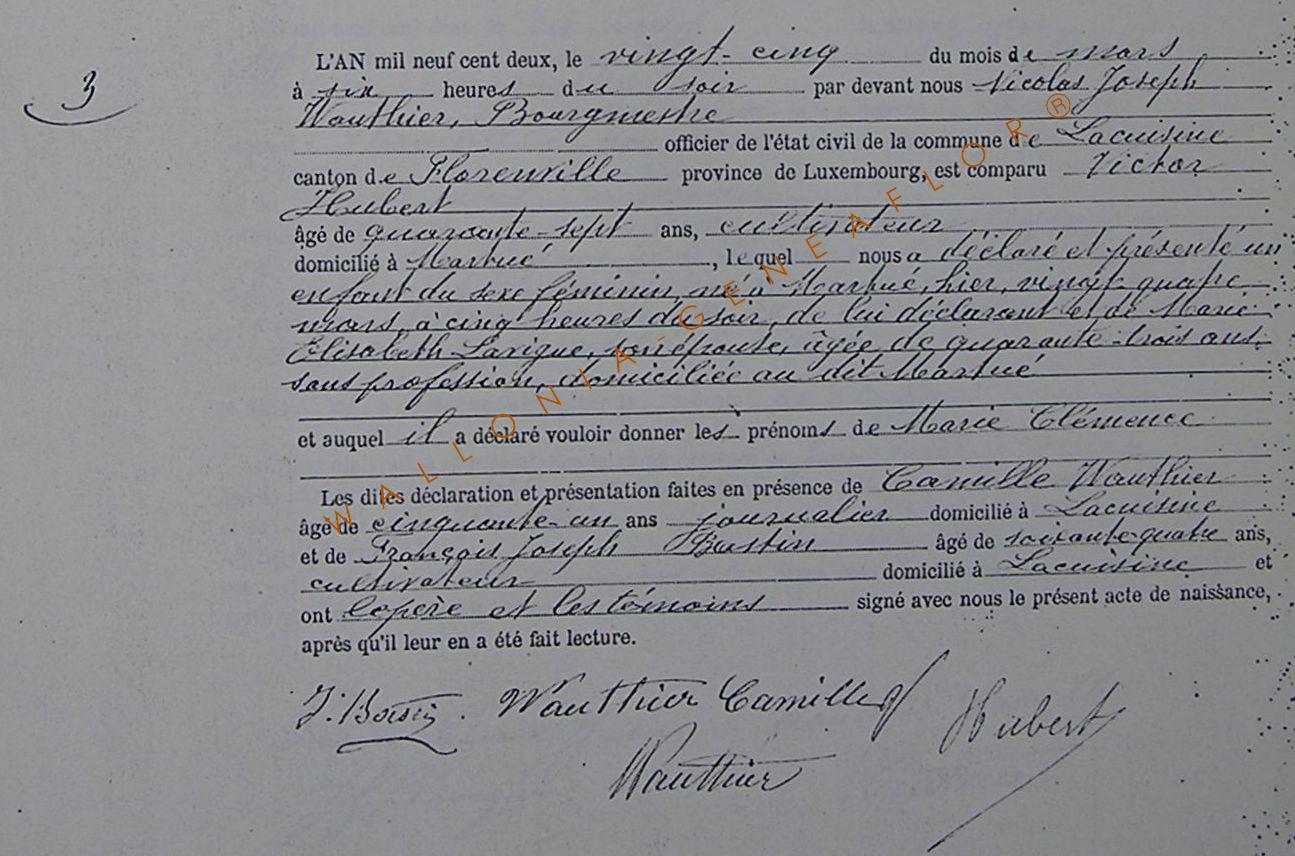 3
L'AN mil neuf cent deux, le vingt-cinq du mois de mars
à six heures du soir par devant nous Nicolas Joseph
Wauthier, Bourgmestre
officier de l'état civil de la commune de Lacuisine
canton de Florenville province de Luxembourg, est comparu Victor
Hubert
âgé de quarante-sept ans, cultivateur
domicilié à Martué, lequel nous a déclaré et présenté un
enfant du sexe féminin, né à Martué, hier, vingt-quatre
mars, à cinq heures du soir, de lui déclarant et de Marie
Elisabeth Lavigne, son épouse, âgée de quarante-trois ans,
sans profession, domiciliée au dit Martué
et auquel il a déclaré vouloir donner les prénoms de Marie Clémence
Les dites déclaration et présentation faites en présence de Camille Wauthier
âgé de cinquante-un ans journalier domicilié à Lacuisine
et de François Joseph Bastin âgé de soixante-quatre ans,
cultivateur domicilié à Lacuisine et
ont le père et les témoins signé avec nous le présent acte de naissance,
après qu'il leur en a été fait lecture.
Wauthier Camille Hubert
Wauthier
WALLONIA-GENEAFLOR®